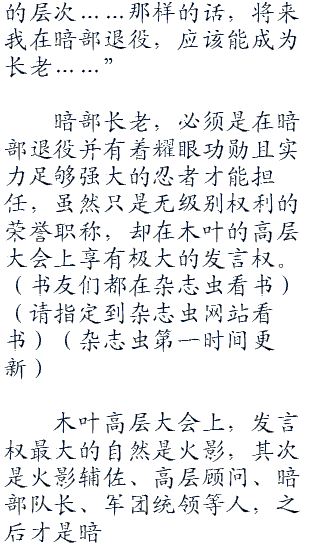 的层次……那样的话，将来
我在暗部退役，应该能成为
长老……”
暗部长老，必须是在暗
部退役并有着耀眼功勋且实
力足够强大的忍者才能担
任，虽然只是无级别权利的
荣誉职称，却在木叶的高层
大会上享有极大的发言权。
（书友们都在杂志虫看书）
（请指定到杂志虫网站看
书）（杂志虫第一时间更
新）
木叶高层大会上，发言
权最大的自然是火影，其次
是火影辅佐、高层顾问、暗
部队长、军团统领等人，之
后才是暗